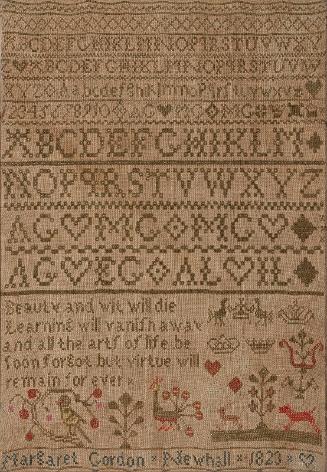 ABCDEFGHIKLMNOPQRSTUVWX
ABCDEFGHIKLMNOPQRSTUVW
XYZ Aabcdefghiklmnopqrstuvwxyz
2345678910 AG MG MG
ABCDEFGHIKLM
NOPQRSTVWXYZ
AG MG MG
AG EG AL H
Beauty and wit will die
Learning will vanish away
and all the arts of life be
soon forgot but virtue will
remain for ever
Margaret Gordon Newhall 1823